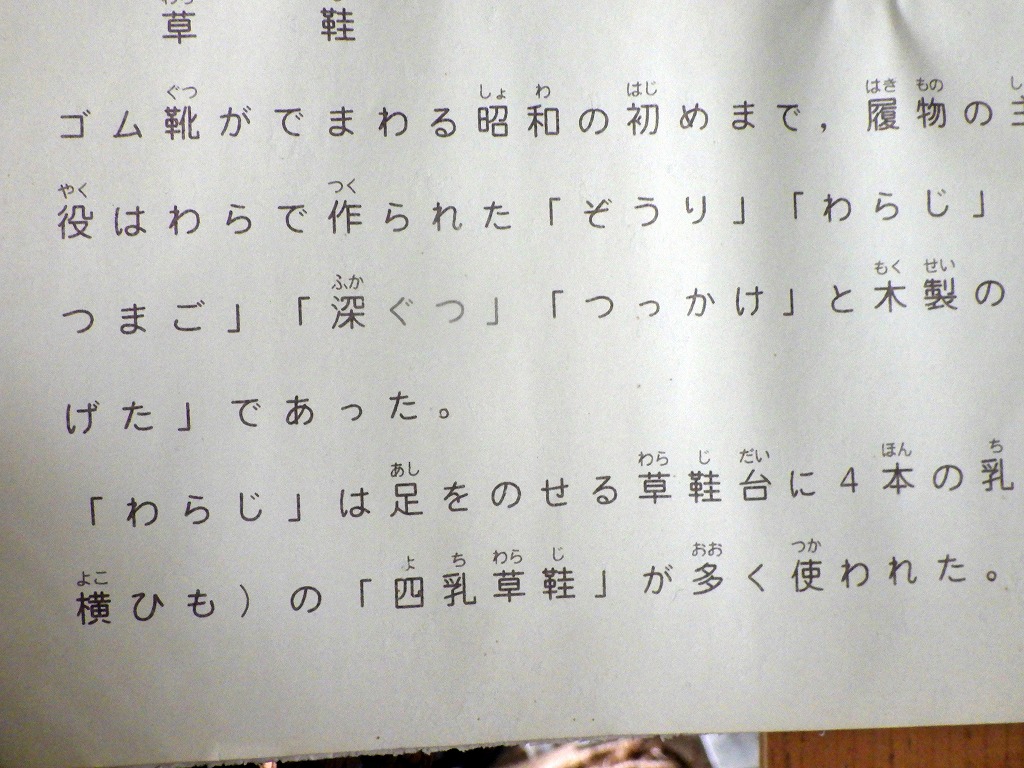 草鞋
ゴム靴がでまわる昭和の初めまで，履物の主
役はわらで作られた「ぞうり」「わらじ」
つまご」「深ぐつ」「つっかけ」と木製の
げた」であった。
「わらじ」は足をのせる草鞋台に4本の乳
横ひも）の「四乳草鞋」が多く使われた。